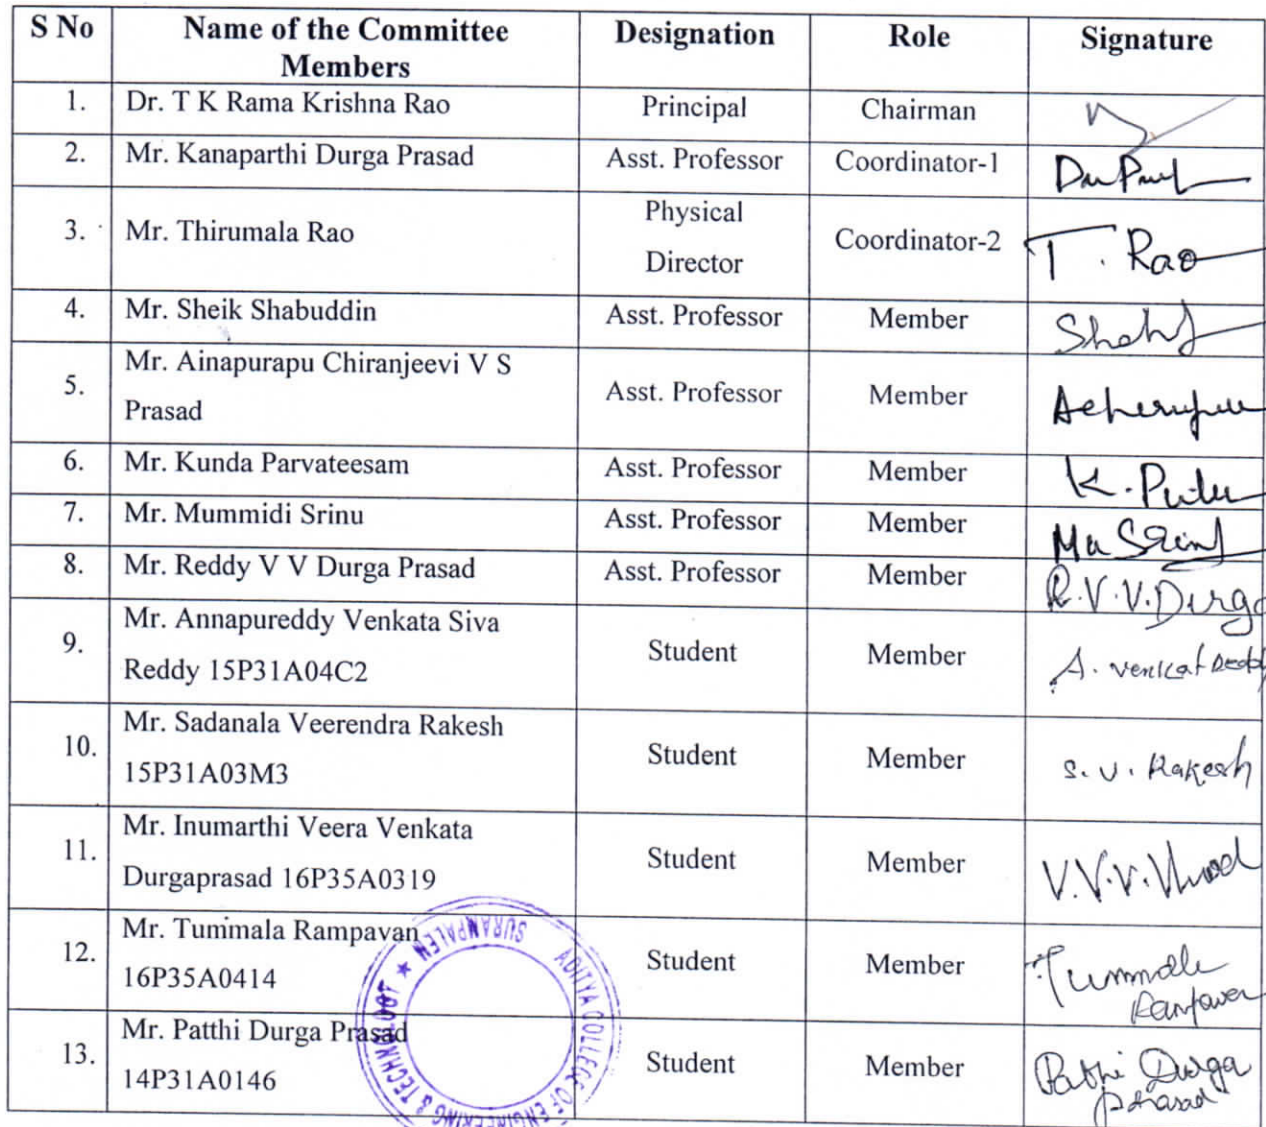 S No Name of the Committee Designation Role Signature
Members
1. Dr. T K Rama Krishna Rao Principal Chairman
2. Mr. Kanaparthi Durga Prasad Asst. Professor Coordinator-1
3. Mr. Thirumala Rao Physical Director Coordinator-2 T. Rao
4. Mr. Sheik Shabuddin Asst. Professor Member
5. Mr. Ainapurapu Chiranjeevi V S
Prasad Asst. Professor Member
6. Mr. Kunda Parvateesam Asst. Professor Member K.
7. Mr. Mummidi Srinu Asst. Professor Member
8. Mr. Reddy V V Durga Prasad Asst. Professor Member R.V.V.Durga
9. Mr. Annapureddy Venkata Siva
Reddy 15P31A04C2 Student Member A. Venkat Reddy
10. Mr. Sadanala Veerendra Rakesh
15P31A03M3 Student Member S. V. Rakesh
11. Mr. Inumarthi Veera Venkata
Durgaprasad 16P35A0319 Student Member V.V.V.
12. Mr. Tummala Rampavan
16P35A0414 Student Member Tummala
Rampavan
13. Mr. Patthi Durga Prasad
14P31A0146 Student Member Patthi Durga
Prasad
ADITYA COLLEGE OF ENGINEERING & TECHNOLOGY ★ SURAMPALEM